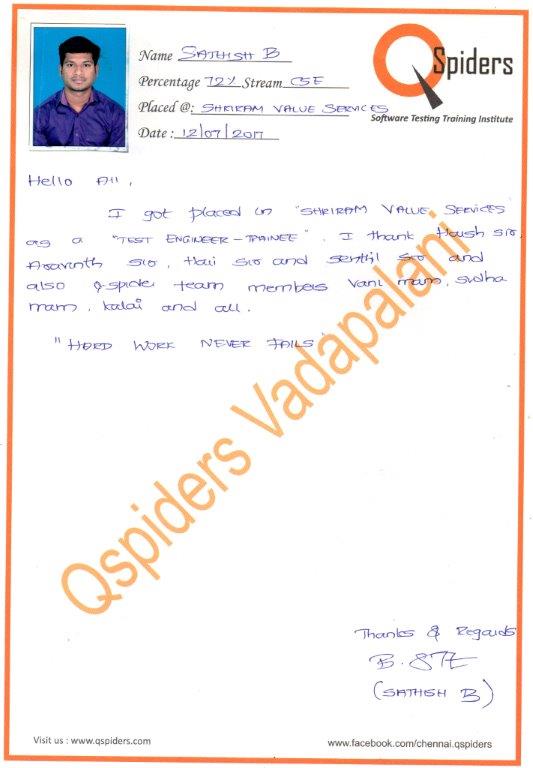 Name SATHISH B
Percentage 72% Stream CSE
Placed @: SHRIRAM VALUE SERVICES
Date : 12/07/2017
QSpiders
Software Testing Training Institute
Hello All,
I got placed in "SHRIRAM VALUE SERVICES
as a "TEST ENGINEER-TRAINEE". I thank Harish sir,
Aravinth sir, Hari sir and Senthil sir and
also Qspider team members Vani mam, sudha
mam, kalai and all.
"HARD WORK NEVER FAILS"
Qspiders Vadapalani
Thanks & Regards
(SATHISH B)
Visit us : www.qspiders.com
www.facebook.com/chennai.qspiders